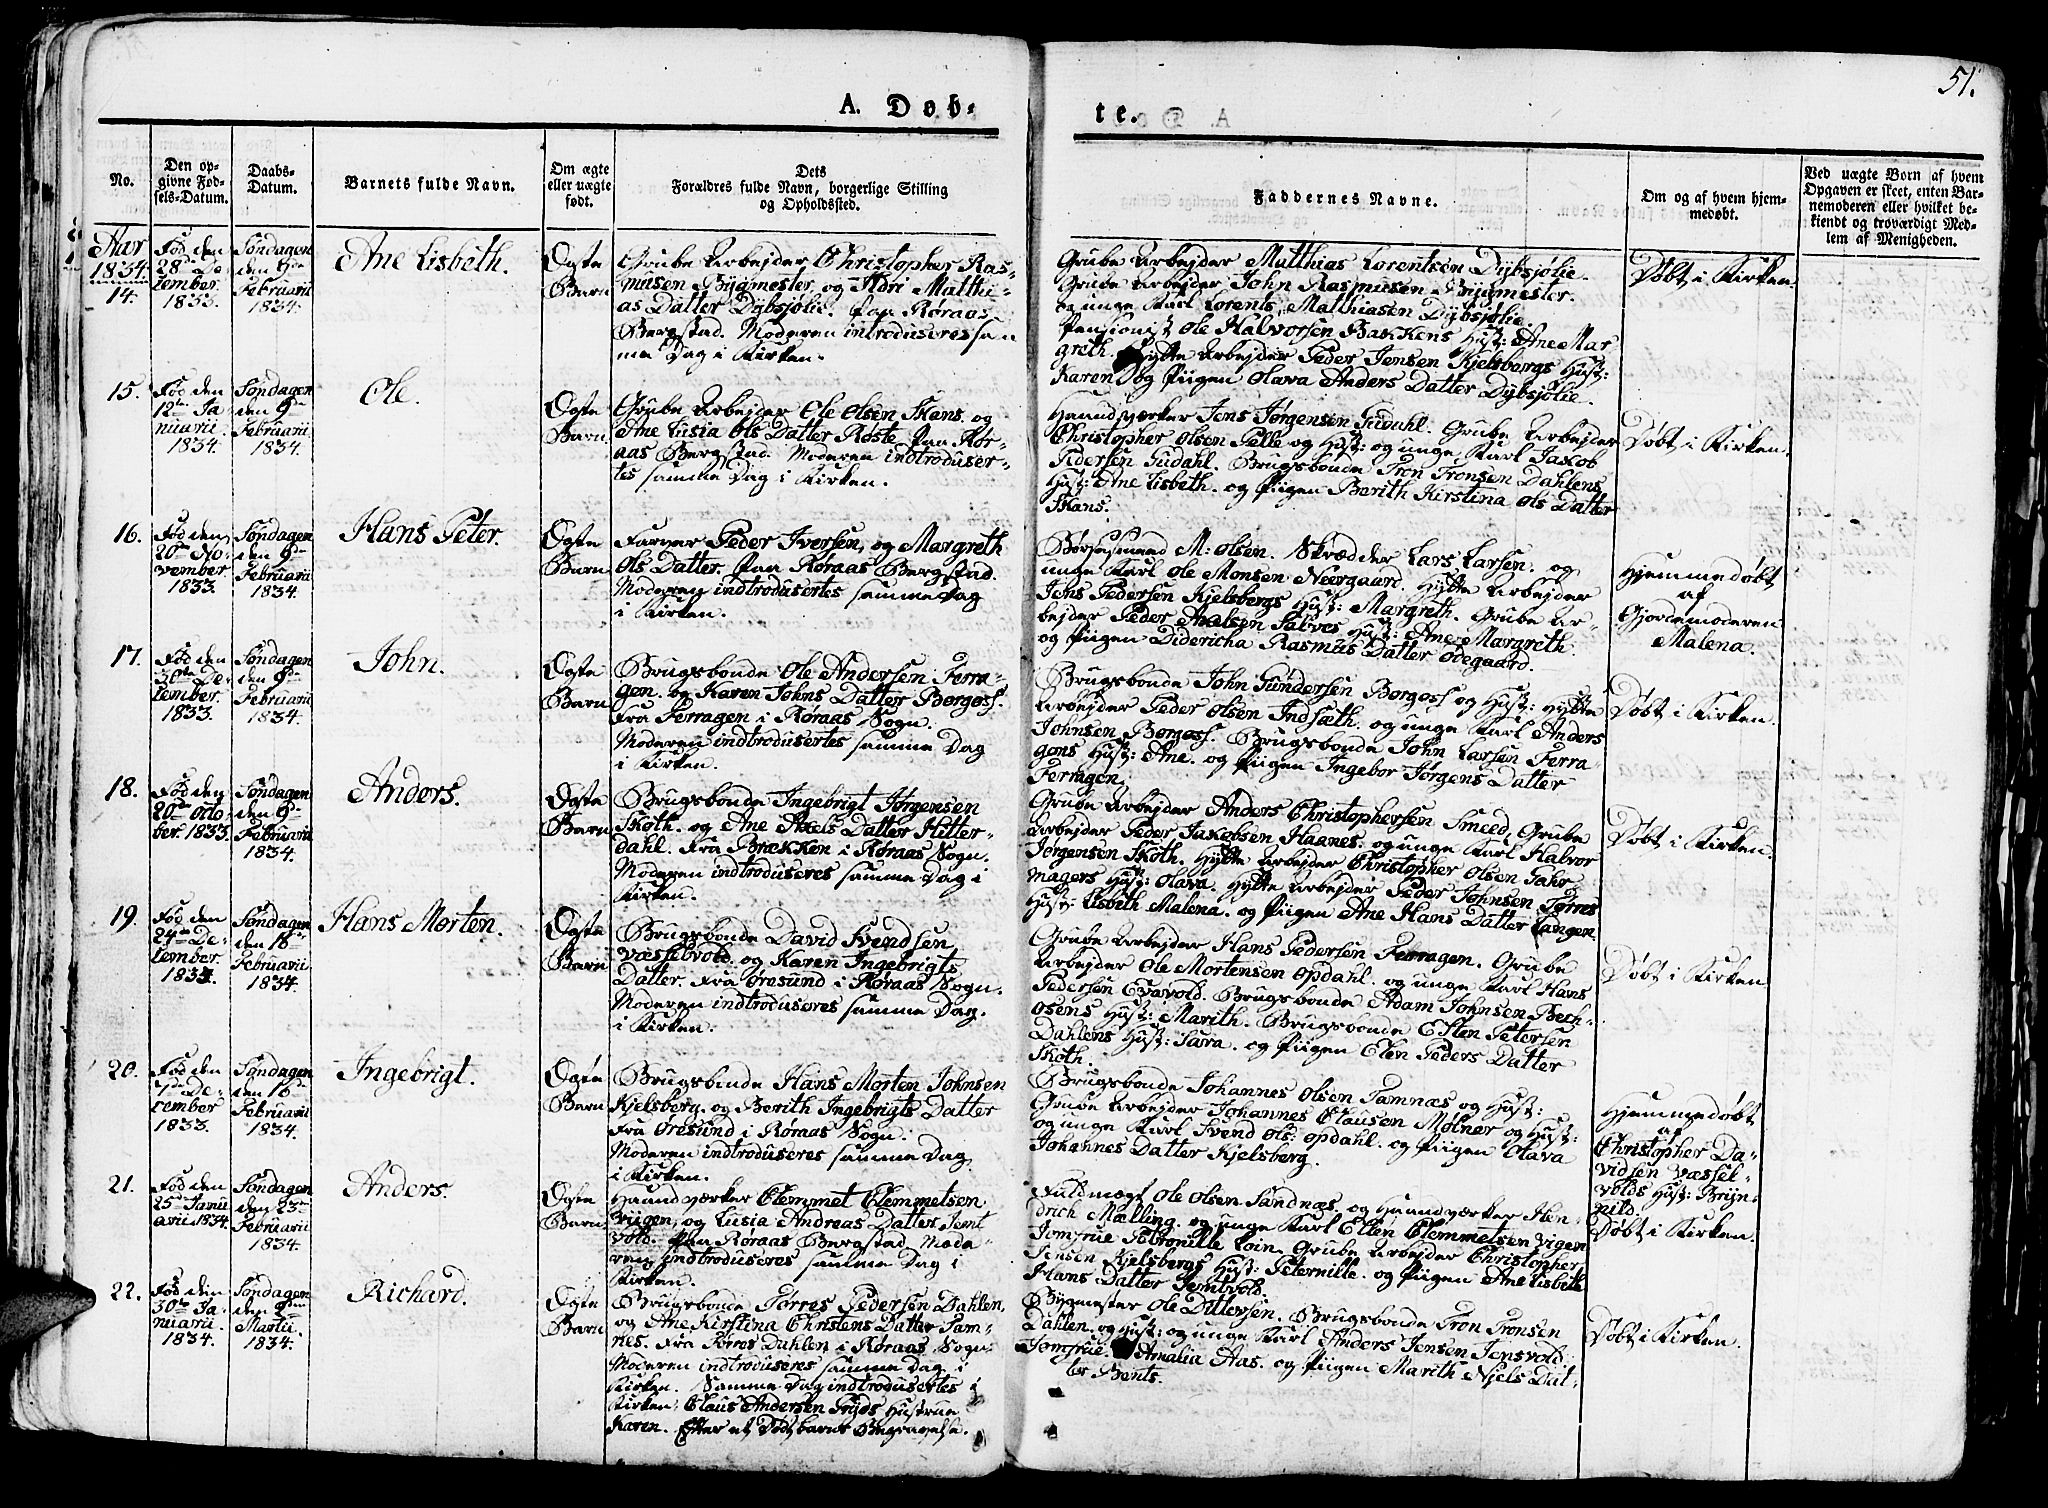 51.
A. Døb-
te.
No.
Den op-
givne Fød-
sels-Datum.
Daabs-
Datum.
Barnets fulde Navn.
Om ægte
eller uægte
født.
Dets
Forældres fulde Navn, borgerlige Stilling
og Opholdssted.
Faddernes Navne.
Om og af hvem hjem-
medøbt.
Ved uægte Børn af hvem
Opgaven er skeet, enten Bar-
nemoderen eller hvilket be-
kiendt og troværdigt Med-
lem af Menigheden.
Aar
1834.
14.
Fød den
28de De-
cember.
1833.
Søndagen
den 9de
Februarii
1834.
Ane Lisbeth.
Ægte
Barn
Grube Arbejder Christopher Ras-
musen Bygmester, og Adri Mathi-
as Datter Dybsjølie. paa Røraas
Bergstad. Moderen introduseres sam
me Dag i Kirken.
Grube Arbejder Matthias Lorentsen Dybsjølie.
Grube Arbejder John Rasmusen Bygmester.
og unge Karl Lorents Mathiasen Dybsjølie.
Pensionist Ole Halvorsen Bakkens Hust: Ane Mar
greth. Hytte Arbejder Peder Jensen Kjelsbergs Hust:
Karen og Piigen Olava Anders Datter Dybsjølie.
Døbt i Kirken.
15.
Fød den
12te Ja-
nuarii.
1834.
Søndagen
den 9de
Februarii.
1834.
Ole.
Ægte
Barn
Grube Arbejder Ole Olsen Skans. og
Ane Lusia Ols Datter Røste paa Rør-
aas Bergstad. Moderen indtroduser-
tes samme Dag i Kirken.
Haandværker Jens Jørgensen Gudahl. Grube Arbejder
Christopher Olsen Pelle og Hust: og unge Karl Jakob
Pedersen Gudahl. Brugsbonde Tron Tronsen Dahlens
Hust: Ane Lisbeth. og Piigen Berith Kirstina Ols Datter
Skans.
Døbt i Kirken.
16.
Fød den
20de No-
vember
1833.
Søndagen
den 9de
Februarii
1834.
Hans Peter.
Ægte
Barn
Farver Peder Iversen, og Margreth
Ols Datter. paa Røraas Bergstad.
Moderen indtrodusertes samme Dag
i Kirken.
M: Olsen. Skrædder Lars Larsen. og
unge Karl Ole Monsen Neergaard. Hytte Arbejder
Jens Pedersen Kjelsbergs Hust: Margreth. Grube Ar-
bejder Peder Axelsen Galvos Hust: Ane Margreth.
og Piigen Didericha Rasmus Datter Ødegaard.
Hjemmedøbt
af
Gjordemoderen
Malena.
17.
Fød den
De-
cember.
1833.
Søndagen
den 9de
Februarii
1834.
John.
Ægte
Barn
Brugsbonde Ole Andersen Ferra-
gen. og Karen Johns Datter Borgos.
fra Ferragen i Røraas Sogn.
Moderen indtrodusertes samme Dag
i Kirken.
Brugsbonde John Gundersen Borgos og Hust: Hytte
Arbejder Peder Olsen Indsæth. og unge Karl Anders
Johnsen Borgos. Brugsbonde John Larsen Ferra-
gens Hust: Ane. og Piigen Ingebor Jørgens Datter
Ferragen.
Døbt i Kirken.
18.
Fød den
20de Octo
ber. 1833.
Søndagen
den 9de
Februarii
1834.
Anders.
Ægte
Barn
Brugsbonde Ingebrigt Jørgensen
Skoth. og Ane Axels Datter Hitter-
dahl. fra Brækken i Røraas Sogn.
Moderen indtroduseres samme Dag i
Kirken.
Grube Arbejder Anders Christophersen Smeed, Grube
Arbejder Peder Jakobsen Haanes. og unge Karl Halvor
Jørgensen Skoth. Hytte Arbejder Christopher Olsen Gahr-
magers Hust: Olava. Hytte Arbejder Peder Johnsen Torres
Hust: Lisbeth Malena. og Piigen Ane Hans Datter Langen.
Døbt i Kirken.
19.
Fød den
24de De-
cember.
1833.
Søndagen
den 16de
Februarii.
1834.
Hans Morten.
Ægte
Barn
Brugsbonde David Svendsen
Væsselvold. og Karen Ingebrigts
Datter. fra Øresund i Røraas Sogn.
Moderen indtroduseres samme Dag.
i Kirken.
Grube Arbejder Hans Pedersen Ferragen. Grube
Arbejder Ole Mortensen Opdahl. og unge Karl Hans
Pedersen Evavold. Brugsbonde Adam Johnsen Bech-
osens Hust: Marith. Brugsbonde Esten Petersen
Dahlens Hust: Sara. og Piigen Elen Peders Datter
Skoth.
Døbt i Kirken
20.
Fød den
7de De-
cember
1833.
Søndagen
den 16de
Februarii
1834.
Ingebrigt.
Ægte
Barn
Brugsbonde Hans Morten Johnsen
Kjelsberg. og Berith Ingebrigts Datter
fra Øresund i Røraas Sogn.
Moderen indtroduseres samme Dag
i Kirken.
Brugsbonde Johannes Olsen Tamnæs og Hust:
Grube Arbejder Johannes Clausen Molner og Hust:
og unge Karl Svend Ols: Opdahl. og Piigen Olava
Johannes Datter Kjelsberg.
Hjemmedøbt
af
Christopher Da-
vidsen Vassel-
volds Hust: Bryn-
nild.
21.
Fød den
25de Janu
arii. 1834.
Søndagen
den 23de
Februarii
1834.
Anders.
Ægte
Barn
Haandværker Clemmet Clemmetsen
Viigen, og Lusia Andreas Datter Jemt
vold. paa Røraas Bergstad. Mode-
ren indtroduseres samme Dag i
Kirken.
Fuldmægt Ole Olsen Sandnæs. og Haandværker Hen-
drich Mælling. og unge Karl Ellen Clemmetsen Vigen
Jomfrue Petronille Loin. Grube Arbejder Christopher
Jensen Kjelsbergs Hust: Peternille. og Piigen Ane Lisbeth
Hans Datter Jemtvold.
Døbt i Kirken.
22.
Fød den
30te Ja-
nuarii
1834.
Søndagen
den 2den
Martii
1834.
Richard.
Ægte
Barn
Brugsbonde Torres Pedersen Dahlen,
og Ane Kirstina Christens Datter Tam-
nes. fra Torres Dahlen i Røraas Sogn.
Moderen indtroduseres samme Dag i
Kirken. Samme Dag indtrodusertes i
Kirken, Claus Andersen Fryds Hustrue
Karen. Efter et Dødt barns Begravelse.
Bygmester Ole Ditlevsen. Brugsbonde Tron Tronsen
Dahlen. og Hust: og unge Karl Anders Jensen Jensvold.
Jomfrue. Amalia Aas. og Piigen Marith Njels Dat-
ter Bents.
Døbt i Kirken.